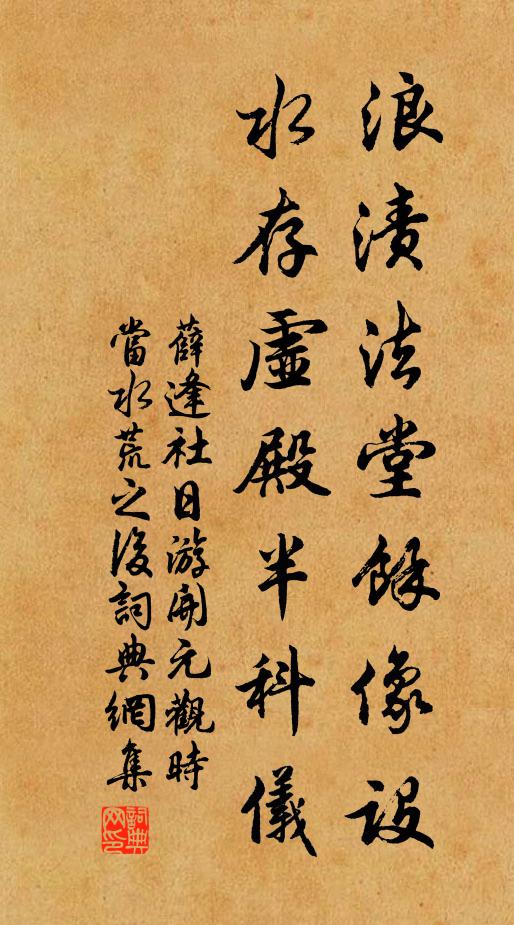 浪漬法堂餘像設
水存虛殿半科儀
薛逢社日游開元觀時
當水荒之後詞典網集
詞典网印